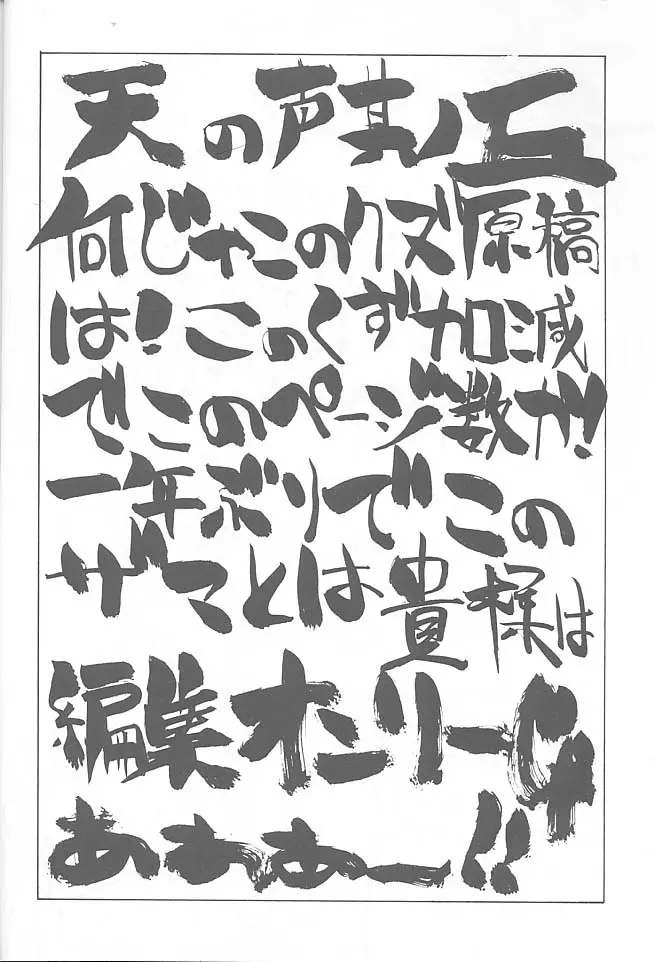 天の声其ノ五
何じゃこのクズ原稿
は!このくず加減
でこのページ数か!
一年ぶりでこの
ザマとは貴様は
編集オンリーじゃ
あぁぁー!!